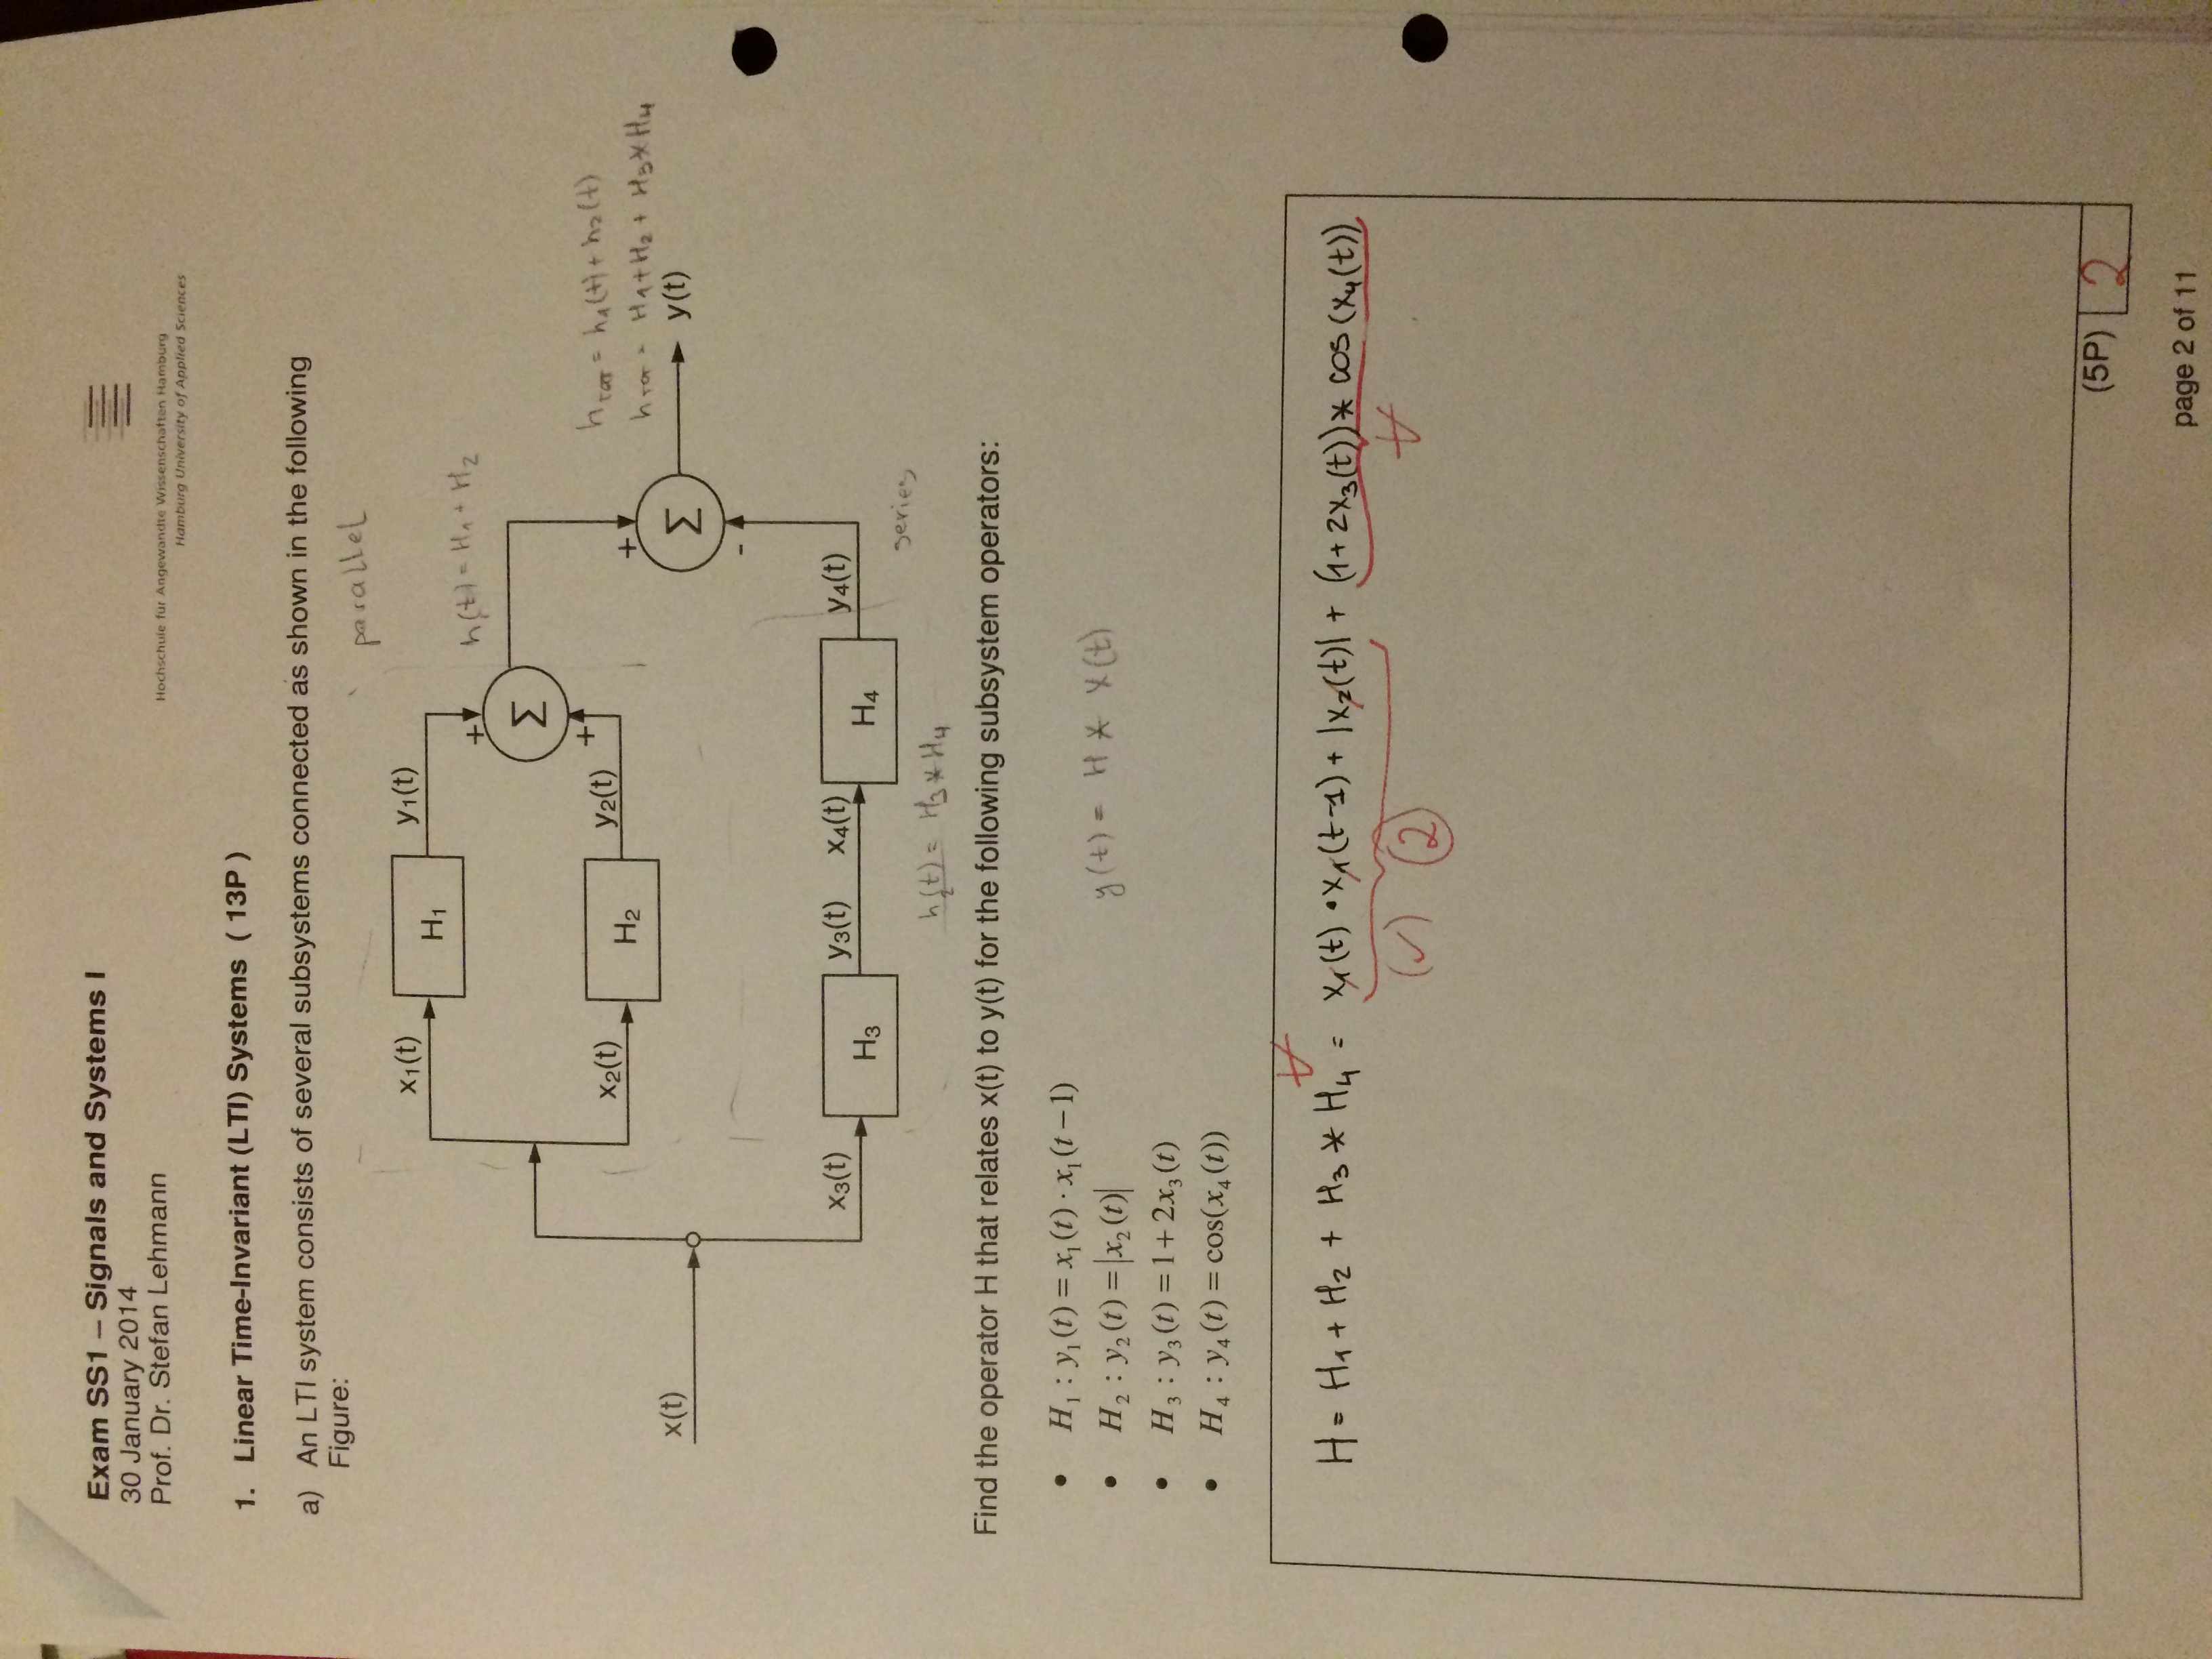 Exam SS1 – Signals and Systems I
30 January 2014
Prof. Dr. Stefan Lehmann
Hochschule für Angewandte Wissenschaften Hamburg
Hamburg University of Applied Sciences
1. Linear Time-Invariant (LTI) Systems ( 13P )
a) An LTI system consists of several subsystems connected as shown in the following
Figure:
parallel
x₁(t) H₁ y₁(t)
+
h₁(t) = H₁ + H₂
Σ
+
x₂(t) H₂ y₂(t)
h_TOT = h₁(t) + h₂(t)
h_TOT = H₁ + H₂ + H₃ * H₄
+
x(t) Σ y(t)
-
x₃(t) H₃ y₃(t) x₄(t) H₄ y₄(t)
series
h₂(t) = H₃ * H₄
Find the operator H that relates x(t) to y(t) for the following subsystem operators:
• H₁ : y₁(t) = x₁(t) · x₁(t − 1)
• H₂ : y₂(t) = |x₂(t)|
y(t) = H * X(t)
• H₃ : y₃(t) = 1 + 2x₃(t)
• H₄ : y₄(t) = cos(x₄(t))
H = H₁ + H₂ + H₃ * H₄ = x₁(t) · x₁(t-1) + |x₂(t)| + (1 + 2x₃(t)) * cos (x₄(t))
(✓) 2
(5P) 2
page 2 of 11